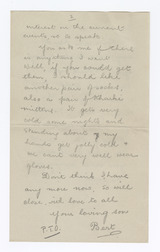 3
interest in the current
events, so to speak.
You ask me if there
is anything I want
Well, if you could get
them, I should like
another pair of socks,
also a pair of thick
mittens. It gets very
cold some nights and
standing about my
hands get jolly cold &
we cant very well wear
gloves.
Don't think I have
any more now, so will
close, with love to all
your loving son
P.T.O. Bert